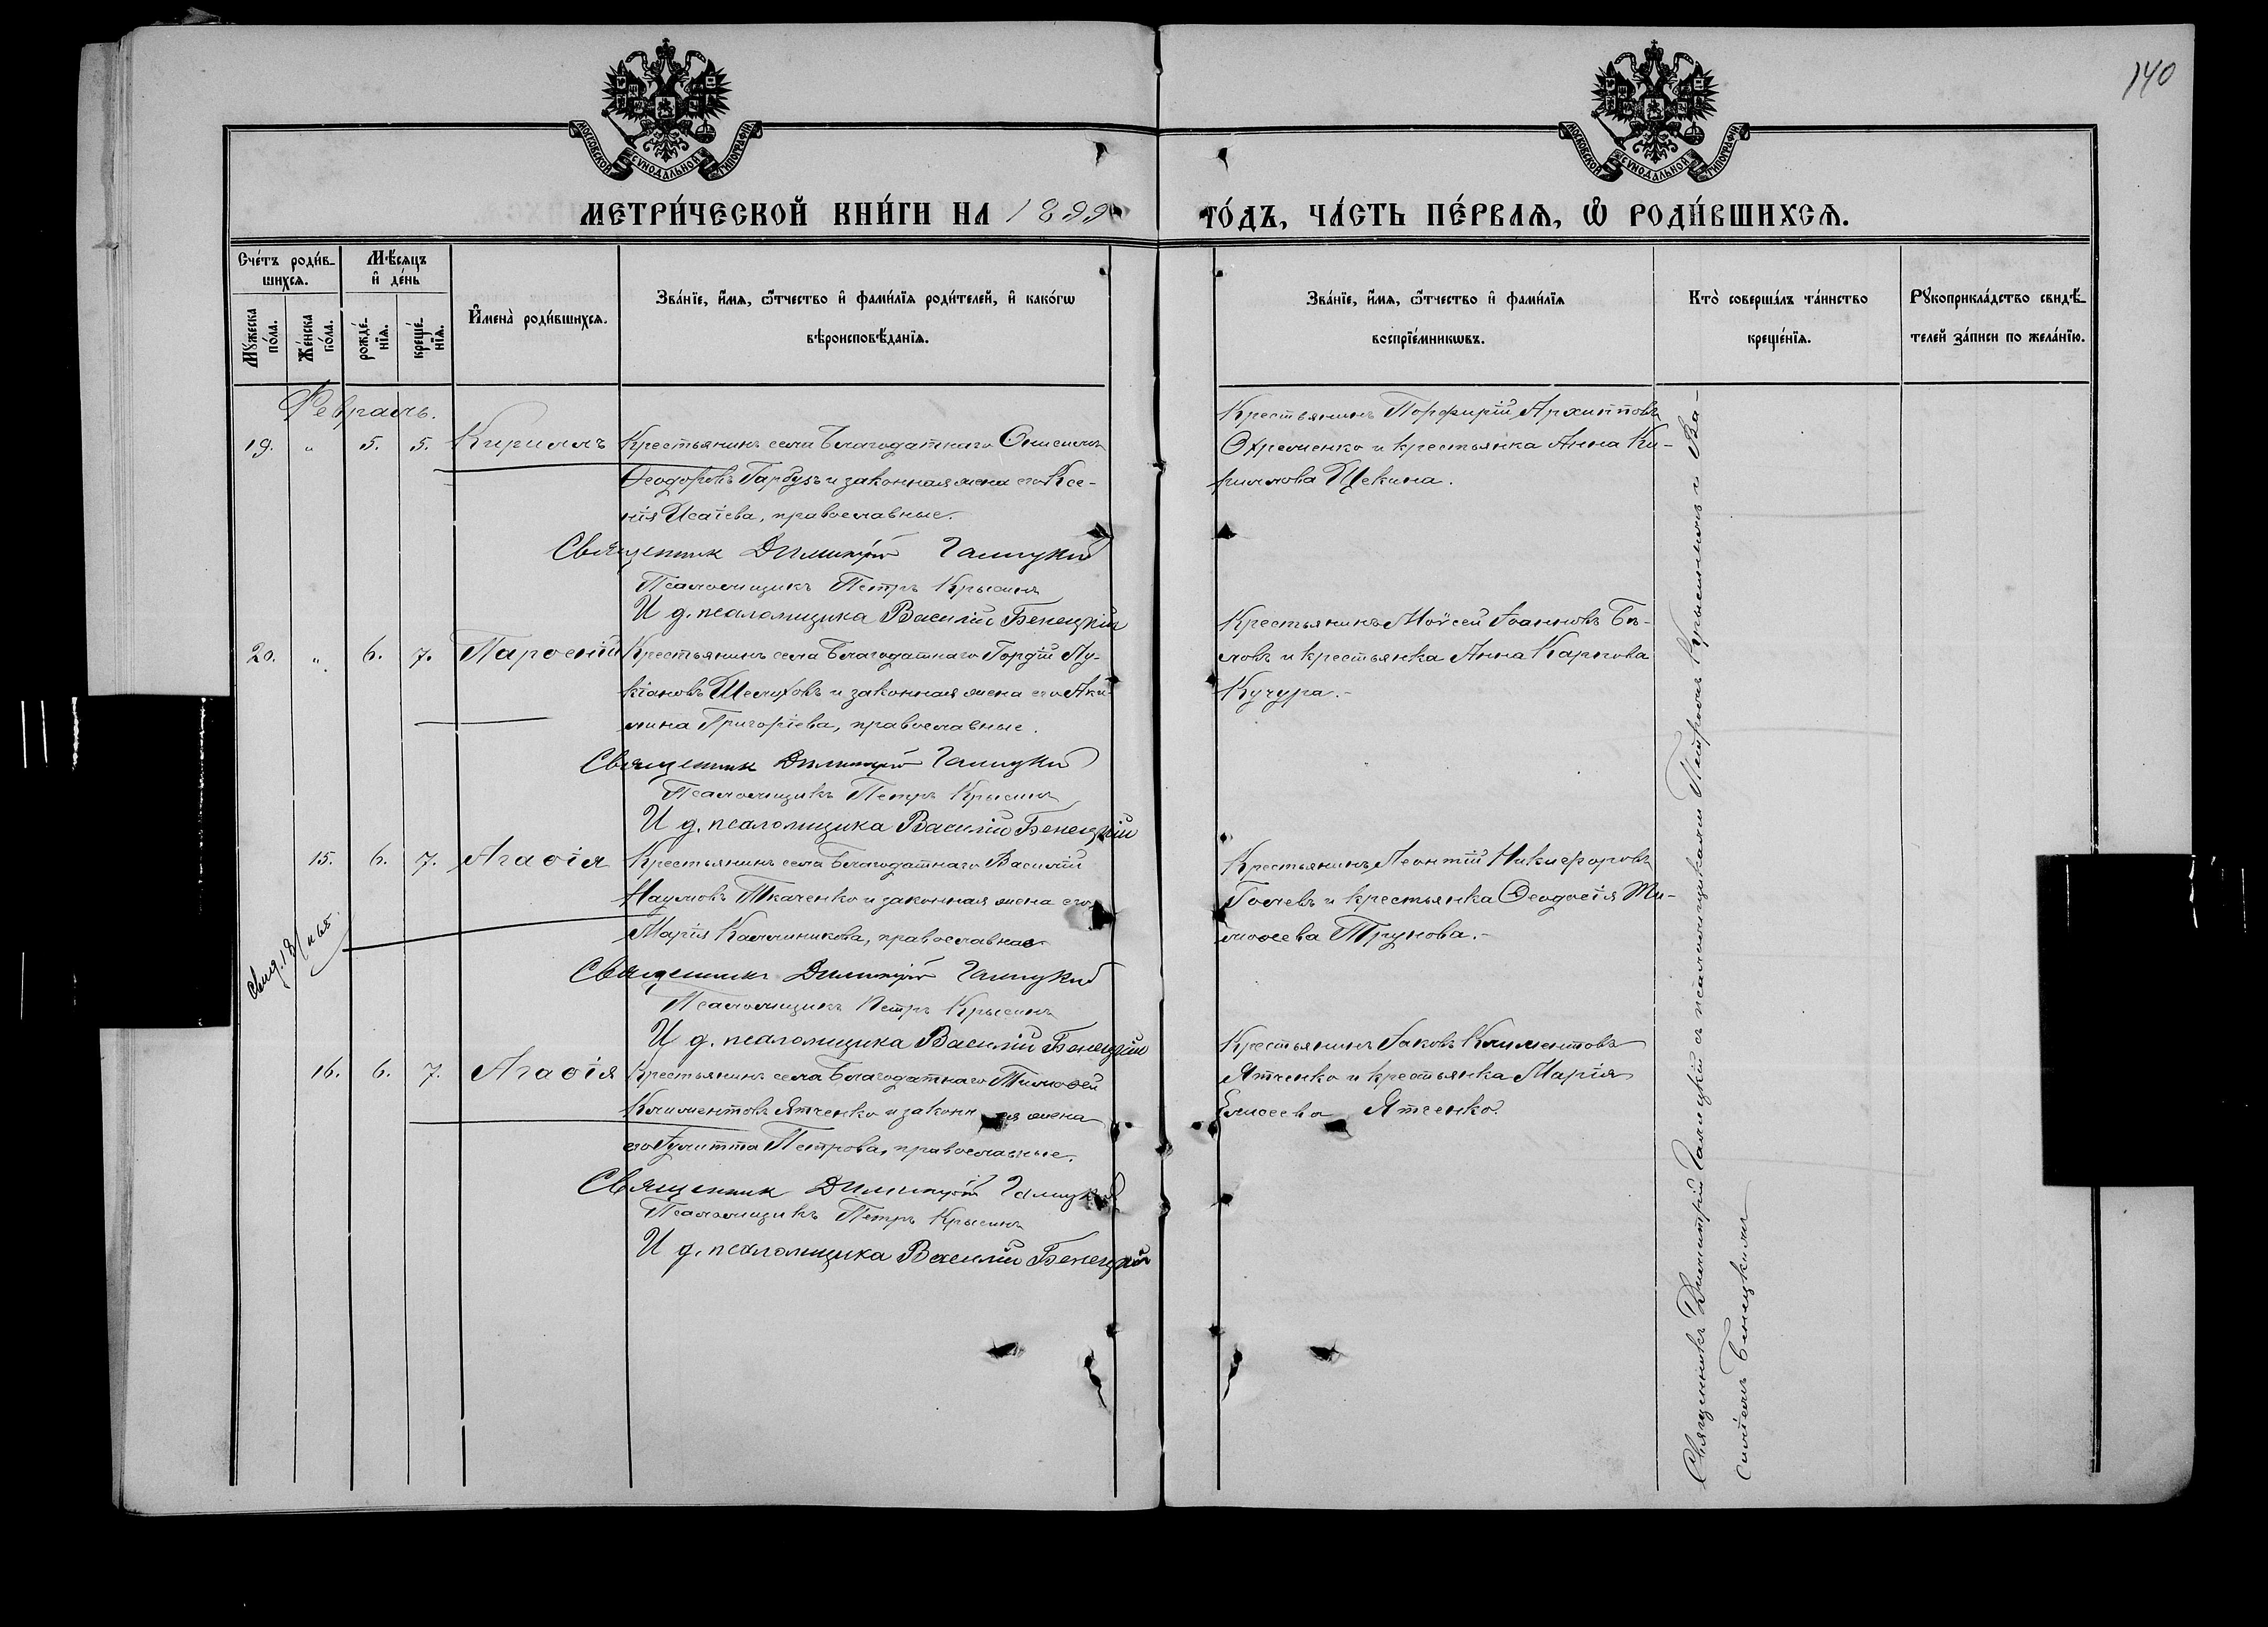 140
МОСКОВСКОЙ СѴНОДАЛЬНОЙ ТИПОГРАФІИ
МОСКОВСКОЙ СѴНОДАЛЬНОЙ ТИПОГРАФІИ
МЕТРИ́ЧЕСКОЙ КНИ́ГИ НА 1899
ГО́ДЪ, ЧА́СТЬ ПЕ́РВАѦ, Ѽ РОДИ́ВШИХСѦ.
Сче́тъ роди́в-
шихсѧ.
Мꙋ́жеска по́ла.
Же́нска по́ла.
Мѣ́сяцъ
и҆ де́нь
рожде́-
нїѧ.
креще́-
нїѧ.
И҆мена̀ роди́вшихсѧ.
Зва́нїе, и҆́мѧ, ѻ҆́тчество и҆ фами́лїѧ роди́телей, и҆ како́гѡ
вѣроисповѣ́данїѧ.
Зва́нїе, и҆́мѧ, ѻ҆́тчество и҆ фами́лїѧ
воспрїе́мникѡвъ.
Кто̀ соверша́лъ та́инство
креще́нїѧ.
Рꙋкоприкла́дство свидѣ́-
телей за́писи по жела́нїю.
Февраль.
19. " 5. 5. Кириллъ Крестьянинъ села Благодатнаго Онисимъ
Ѳеодоровъ Гарбузъ и законная жена его Ксе-
нія Исаіева, православные.
Священник Димитрій Галицкій
Псаломщикъ Петръ Крысинъ
И д. псаломщика Василій Бенецкій
Крестьянинъ Порфирій Архипповъ
Охременко и крестьянка Анна Ки-
риллова Щекина.
20. " 6. 7. Парѳеній Крестьянинъ села Благодатнаго Гордій Лу-
кіановъ Шелиховъ и законная жена его Аки-
лина Григоріева, православные.
Священник Димитрій Галицкій
Псаломщикъ Петръ Крысинъ
И д. псаломщика Василій Бенецкій
Крестьянинъ Моѵсей Іоанновъ Бѣ-
ловъ и крестьянка Анна Карпова
Кучура.-
15. 6. 7. Агаѳія Крестьянинъ села Благодатнаго Василій
Наумовъ Ткаченко и законная жена его
Марія Каллиникова, православные
Священникъ Димитрій Галицкій
Псаломщикъ Петръ Крысинъ
И д. псаломщика Василій Бенецкій
Крестьянинъ Леонтій Никифоровъ
Голевъ и крестьянка Ѳеодосія Ти-
моѳеева Трунова.-
16. 6. 7. Агаѳія Крестьянинъ села Благодатнаго Тимоѳей
Климентовъ Ятченко и законная жена
его Іулитта Петрова, православные.
Священник Димитрій Галицкій
Псаломщикъ Петръ Крысинъ
И д. псаломщика Василій Бенецкій
Крестьянинъ Іаковъ Климентовъ
Ятченко и крестьянка Марія
Елисеева Ятченко.
Священникъ Димитрій Галицкій съ псаломщиками Петромъ Крысинымъ и Ва-
силіемъ Бенецкимъ